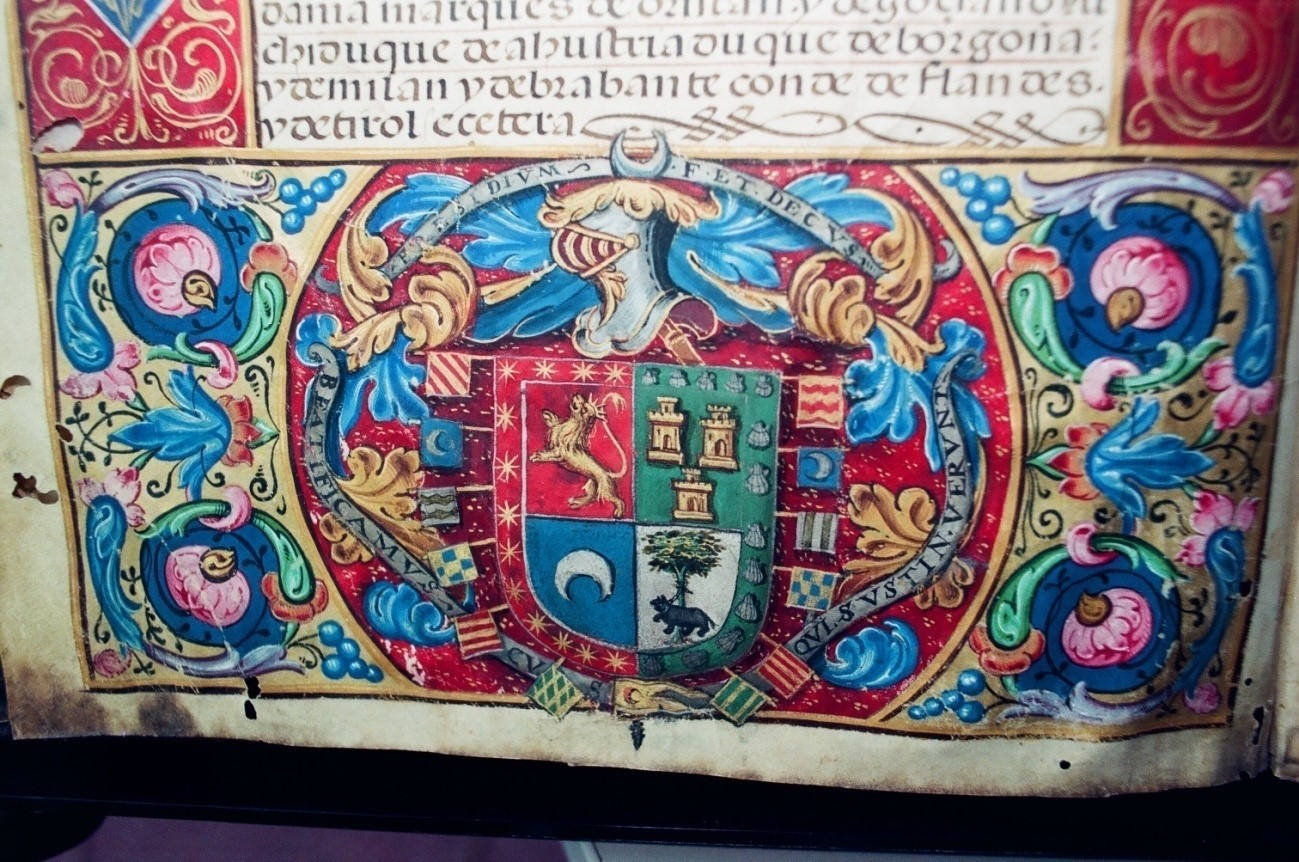 dania marques de oristan y de goçiano ar
chiduque de ahustria duque de borgoña:
y de milan y de brabante conde de flandes.
y de tirol ecetera
DIVM F·ET·DECVS·
BEATIFICAMVS
QVI·SVSTIN·VERVNT